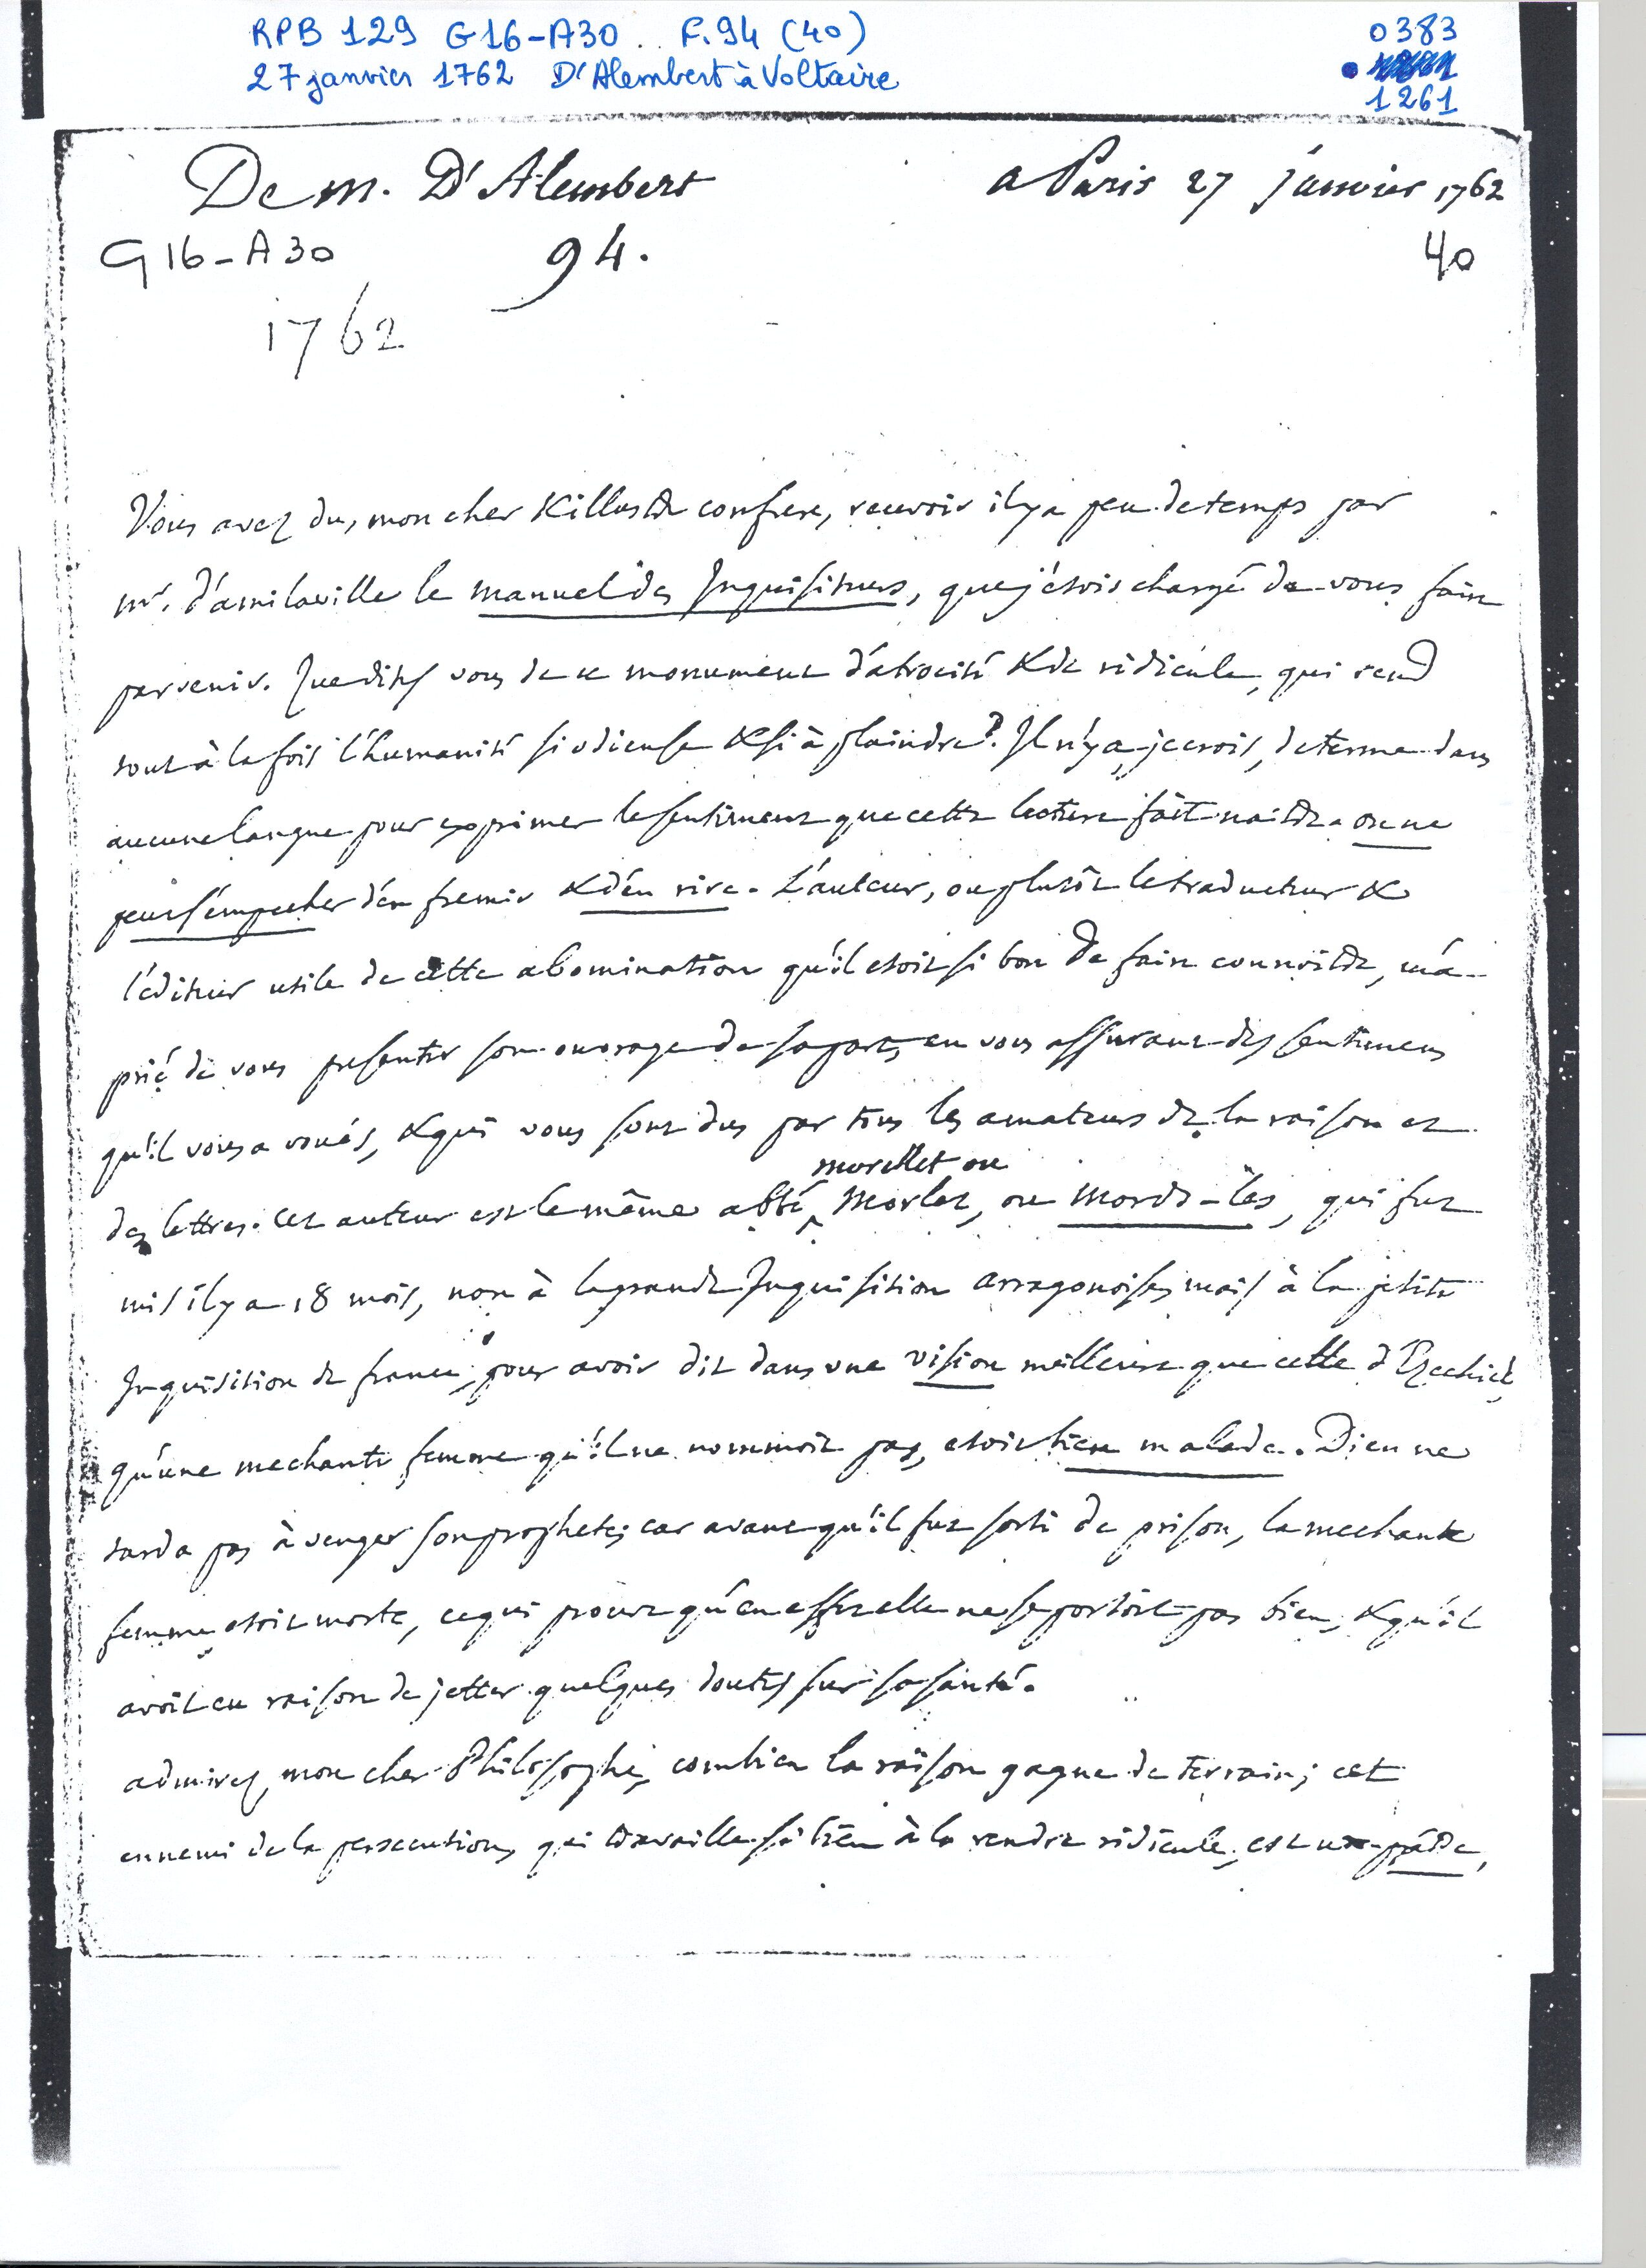 RPB 129 G16-A30 . F.94 (40)
0383
27 janvier 1762 D'Alembert à Voltaire
1261
De m. D'Alembert
a Paris 27 janvier 1762
G16-A30
94.
40
1762
Vous avez du, mon cher & illustre confrere, recevoir il y a peu de temps par
mr. d'amilaville le manuel des Inquisiteurs, que j'étois chargé de vous faire
parvenir. Que dites vous de ce monument d'atrocité & de ridicule, qui rend
tout à la fois l'humanité si odieuse & si à plaindre? Il n'y a, je crois, de terme dans
aucune langue pour exprimer le sentiment que cette lecture fait naitre. on ne
peut s'empecher d'en fremir & d'en rire. L'auteur, ou plutôt le traducteur &
l'éditeur utile de cette abomination qu'il etoit si bon de faire connoitre, m'a
prié de vous presenter son ouvrage de sa part, en vous assurant des sentimens
qu'il vous a voués, & qui vous sont dus par tous les amateurs de la raison et
morellet ou
des lettres. cet auteur est le même abbé Morlet, ou Mords-les, qui fut
mis il y a 18 mois, non à la grande Inquisition arragonoise, mais à la petite
Inquisition de france, pour avoir dit dans une vision meilleure que celle d'Ezechiel,
qu'une mechante femme qu'il ne nommoit pas, etoit bien malade. Dieu ne
tarda pas à venger son prophete; car avant qu'il fut sorti de prison, la mechante
femme etoit morte, ce qui prouve qu'en effet elle ne se portoit pas bien, & qu'il
avoit eu raison de jetter quelques doutes sur sa santé.
admirez, mon cher Philosophe, combien la raison gagne de terrain; cet
ennemi de la persecution, qui travaille si bien à la rendre ridicule, est un prêtre,